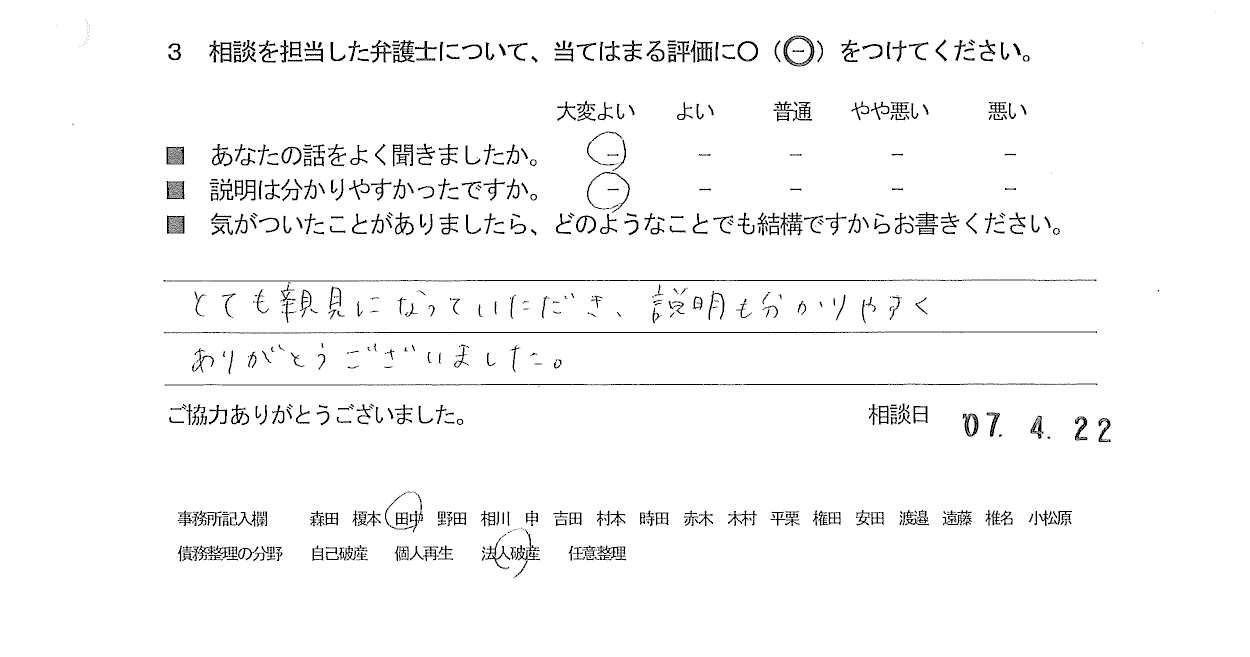 3 相談を担当した弁護士について、当てはまる評価に〇（㊀）をつけてください。
大変よい よい 普通 やや悪い 悪い
■ あなたの話をよく聞きましたか。 － － － － －
■ 説明は分かりやすかったですか。 － － － － －
■ 気がついたことがありましたら、どのようなことでも結構ですからお書きください。
とても親見になっていただき、説明も分かりやすく
ありがとうございました。
ご協力ありがとうございました。 相談日 '07. 4. 22
事務所記入欄 森田 榎本 田中 野田 相川 申 吉田 村本 時田 赤木 木村 平栗 権田 安田 渡邉 遠藤 椎名 小松原
債務整理の分野 自己破産 個人再生 法人破産 任意整理